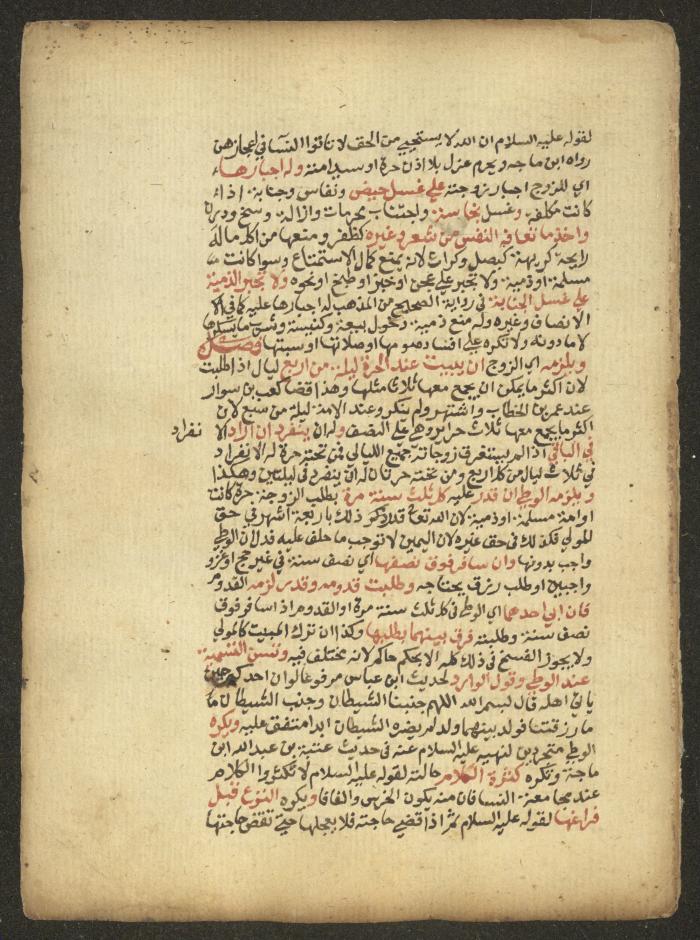 لقوله عليه السلام ان الله لا يستحيي من الحق لا تاتوا النسآ في اعجازهن
رواه ابن ماجه ويحرم عزل بلا اذن حرة او سيد امة وله اجبارها
اي للزوج اجبار زوجته علي غسل حيض ونفاس وجنابة اذا
كانت مكلفة وغسل نجاسة واجتناب محرمات وازالة وسخ ودرن
واخذ ما تعافه النفس من شعر وغيره كظفر ومنعها من اكل ماله
رايحة كريهة كبصل وكراث لانه يمنع كمال الاستمتاع وسوا كانت
مسلمة او ذمية ولا تجبر علي عجن او خبز او طبخ او نحوه ولا تجبر الذمية
علي غسل الجنابة في رواية الصحيح من المذهب له اجبارها عليه كما في
الانصاف وغيره وله منع ذمية دخول بيعة وكنيسة وشرب ما يسكرها
لا ما دونه ولا تكره علي افساد صومها او صلاتها او سبتها فصل
ويلزمه اي الزوج ان يبيت عند الحرة ليلة من اربع ليال اذا طلبت
لان اكثر ما يمكن ان يجمع معها ثلاثا مثلها وهذا قضا كعب بن سوار
عند عمر بن الخطاب واشتهر ولم ينكر وعند الامة ليلة من سبع لان
اكثر ما يجمع معها ثلاث حراير وهي علي النصف وله ان ينفرد ان اراد الانفراد
في الباقي اذا لم يستغرق زوجاته جميع الليالي فمن تحته حرة له الانفراد
في ثلاث ليال من كل اربع ومن تحته حرتان له ان ينفرد في ليلتين وهكذا
ويلزمه الوطي ان قدر عليه كل ثلث سنة مرة بطلب الزوجة حرة كانت
او امة مسلمة او ذمية لان الله تعالى قدر ذلك باربعة اشهر في حق
المولي فكذلك في حق غيره لان اليمين لا توجب ما حلف عليه فدل ان الوطي
واجب بدونها وان سافر فوق نصفها اي نصف سنة في غير حج او غزو
واجبين او طلب رزق يحتاجه وطلبت قدومه وقدر لزمه القدوم
فان ابي احدهما اي الوطي في كل ثلث سنة مرة او القدوم اذا سافر فوق
نصف سنة وطلبته فرق بينهما بطلبها وكذا ان ترك المبيت كالمولي
ولا يجوز الفسخ في ذلك كله الا بحكم حاكم لانه مختلف فيه وتسن التسمية
عند الوطي وقول الوارد لحديث ابن عباس مرفوعا لو ان احدكم حين
ياتي اهله قال بسم الله اللهم جنبنا الشيطان وجنب الشيطان ما
رزقتنا فولد بينهما ولد لم يضره الشيطان ابدا متفق عليه ويكره
الوطي متجردين لنهيه عليه السلام عنه في حديث عتبة بن عبد الله ابن
ماجة وتكره كثرة الكلام حالته لقوله عليه السلام لا تكثروا الكلام
عند مجامعة النسا فان منه يكون الخرس والفافا ويكره النزع قبل
فراغها لقوله عليه السلام ثم اذا قضي حاجته فلا يعجلها حتي تقضي حاجتها